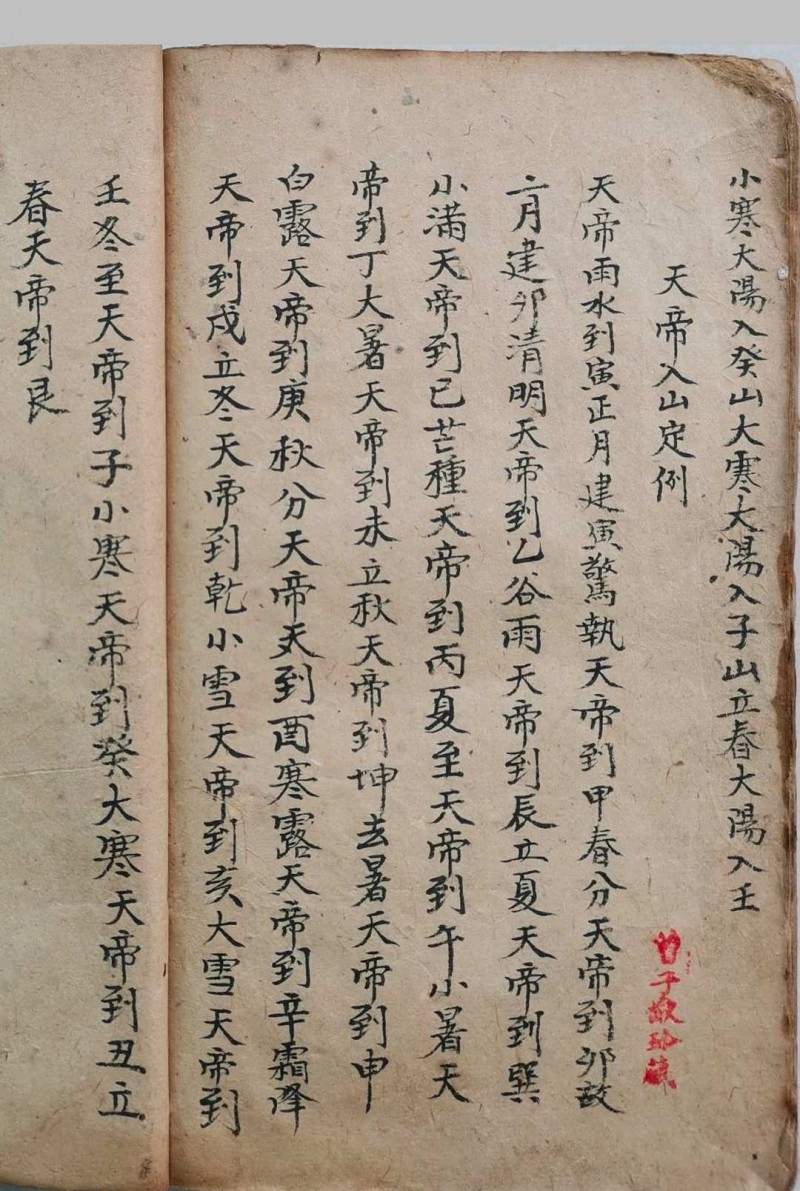 小寒大陽入癸山大寒大陽入子山立春大陽入壬
天帝入山定例
天帝雨水到寅正月建寅驚執天帝到甲春分天帝到卯故
二月建卯清明天帝到乙谷雨天帝到辰立夏天帝到巽
小滿天帝到巳芒種天帝到丙夏至天帝到午小暑天
帝到丁大暑天帝到未立秋天帝到坤去暑天帝到申
白露天帝到庚秋分天帝天到酉寒露天帝到辛霜降
天帝到戌立冬天帝到乾小雪天帝到亥大雪天帝到
壬冬至天帝到子小寒天帝到癸大寒天帝到丑立
春天帝到艮